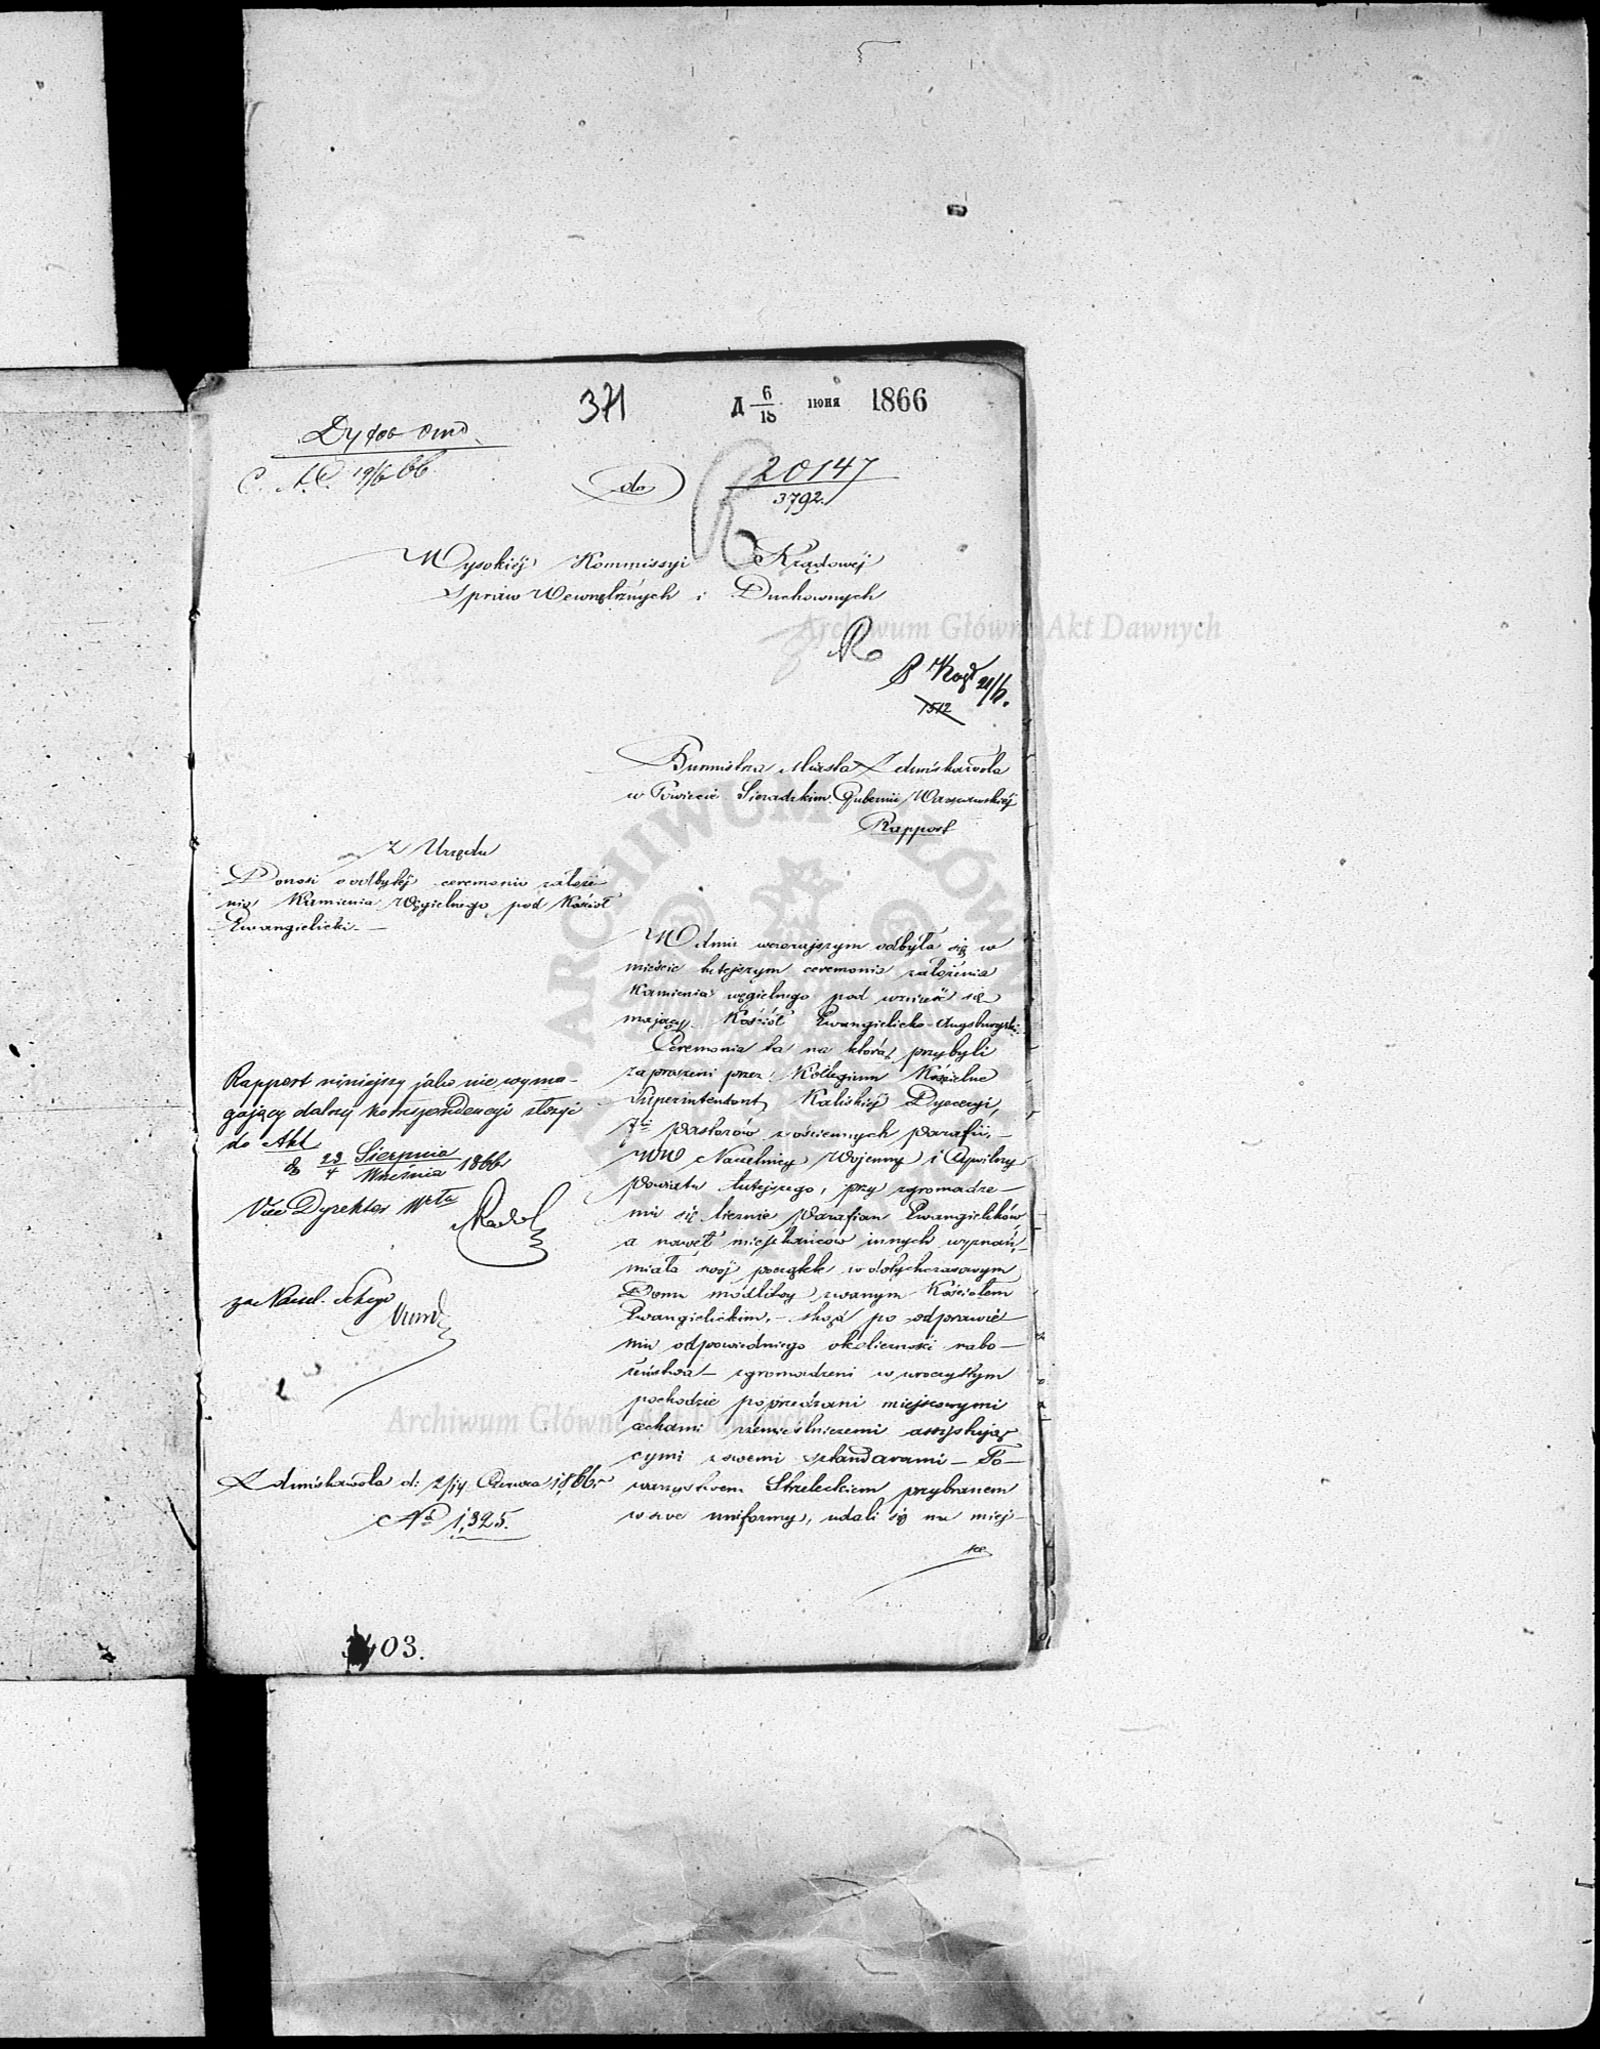 371
Д 6/18 июня 1866
Духов отд.
19/6 66.
do
20147
3792.
Wysokiéj Kommissyi Rządowéj
Spraw Wewnętrznych i Duchownych
Archiwum Główne Akt Dawnych
21/6.
1512
Burmistrza Miasta Zduńskawola
w Powiecie Sieradzkim Gubernii Warszawskiéj
Rapport
Z Urzędu
Donosi o odbytéj ceremonii założe
nia Kamienia Węgielnego pod Kościół
Ewangielicki.—
W dniu wczorajszym odbyła się w
mieście tutejszym ceremonia założenia
Kamienia węgielnego pod wznieść się
mający Kościół Ewangielicko-Augsburgski.
Ceremonia ta na którą przybyli
zaproszeni przez Kollegium Kościelne
Superintendent Kaliskiéj Dyecezyi,
7iu Pastorów z ościennych parafii,—
WW Naczelnicy Wojenny i Cywilny
Powiatu tutejszego, przy zgromadze—
niu się licznie Parafian Ewangielików
a nawet mieszkańców innych wyznań,—
miała swój początek w dotychczasowym
Domu modlitwy zwanym Kościołem
Ewangielickim,— skąd po odprawie—
niu odpowiedniego okoliczności nabo—
żeństwa— zgromadzeni w uroczystym
pochodzie poprzedzani miejscowymi
cechami rzemieślniczemi assystują
cymi z swemi sztandarami— To—
warzystwem Strzeleckiem przybranem
w swe uniformy, udali się na miej—
sce
Rapport niniejszy jako nie wyma-
gający dalszéj korrespondencyi złożyć
do Akt
d 23/4 Sierpnia/Września 1866
Vice Dyrektor Wdłu
za Naczel. Sekcyi
Archiwum Główne Akt Dawnych
Zduńskawola d: 2/14 Czerwca 1866r
No 1,325.
03.